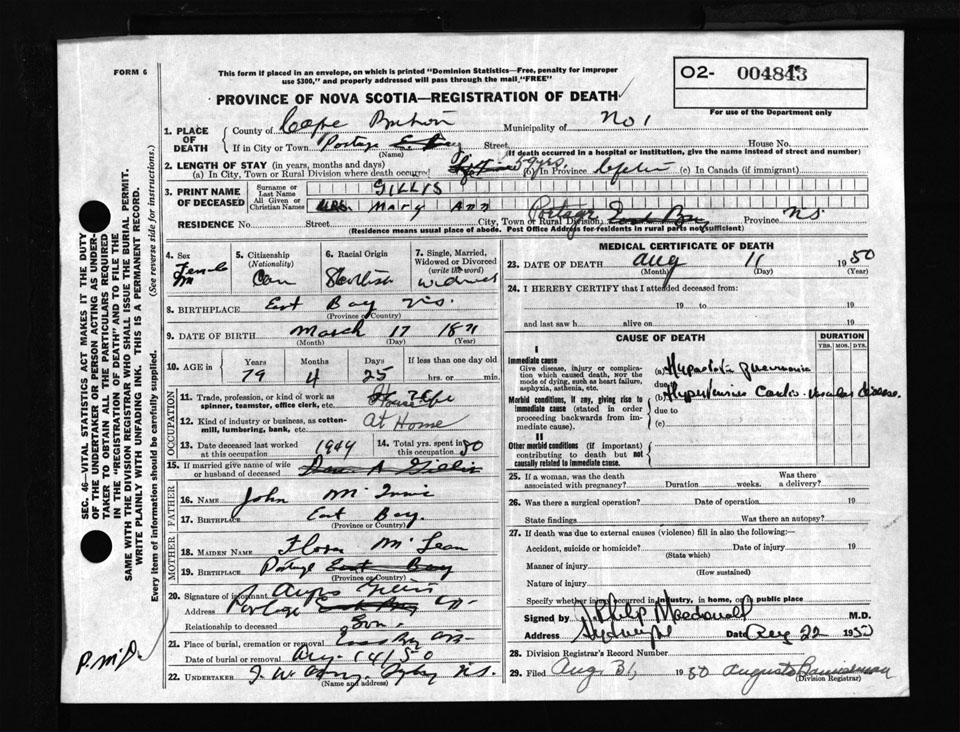 FORM 6
This form if placed in an envelope, on which is printed "Dominion Statistics—Free, penalty for improper
use $300," and property addressed will pass through the mail, "FREE"
O2- 004843
PROVINCE OF NOVA SCOTIA—REGISTRATION OF DEATH
For use of the Department only
1. PLACE OF DEATH
County of Cape Breton Municipality of No 1
If in City or Town Portage Street House No.
(Name) (If death occurred in a hospital or institution, give the name instead of street and number)
2. LENGTH OF STAY (in years, months and days)
(a) In City, Town or Rural Division where death occurred 5 yrs. (b) In Province Lifetime (c) In Canada (if immigrant)
3. PRINT NAME OF DECEASED
Surname or Last Name GILLIS
All Given or Christian Names MRS. Mary Ann
RESIDENCE No. Street City, Town or Rural Division Portage East Bay Province N.S.
(Residence means usual place of abode. Post Office Address for residents in rural parts not sufficient)
4. Sex Female
5. Citizenship (Nationality) Can
6. Racial Origin Scottish
7. Single, Married, Widowed or Divorced (write the word) Widowed
8. BIRTHPLACE East Bay N.S.
(Province or Country)
9. DATE OF BIRTH March 17 1871
(Month) (Day) (Year)
10. AGE in Years Months Days If less than one day old
79 4 25 hrs. or min.
OCCUPATION
11. Trade, profession, or kind of work as
spinner, teamster, office clerk, etc. Housewife
12. Kind of industry or business, as cotton-
mill, lumbering, bank, etc. At Home
13. Date deceased last worked
at this occupation 1949
14. Total yrs. spent in
this occupation 50
15. If married give name of wife
or husband of deceased Dan A Gillis
FATHER
16. NAME John
17. BIRTHPLACE East Bay.
(Province or Country)
MOTHER
18. MAIDEN NAME Flora McLean
19. BIRTHPLACE Portage East Bay
(Province or Country)
20. Signature of informant Angus Gillis
Address Portage East Bay
Relationship to deceased Son.
21. Place of burial, cremation or removal East Bay
Date of burial or removal Aug. 14/50
22. UNDERTAKER N.S.
(Name and address)
MEDICAL CERTIFICATE OF DEATH
23. DATE OF DEATH Aug 11 1950
(Month) (Day) (Year)
24. I HEREBY CERTIFY that I attended deceased from:
19 to 19
and last saw h alive on 19
CAUSE OF DEATH
DURATION
YRS. MOS. DYS.
I
Immediate cause
Give disease, injury or complica-
tion which caused death, not the
mode of dying, such as heart failure,
asphyxia, asthenia, etc.
(a) Hypostatic pneumonia
due to
Morbid conditions, if any, giving rise to
immediate cause (stated in order
proceeding backwards from im-
mediate cause).
(b) Hypertensive Cardio-vascular disease.
due to
(c)
II
Other morbid conditions (if important)
contributing to death but not
causally related to immediate cause.
25. If a woman, was the death
associated with pregnancy? Duration weeks. Was there
a delivery?
26. Was there a surgical operation? Date of operation 19
State findings Was there an autopsy?
27. If death was due to external causes (violence) fill in also the following:—
Accident, suicide or homicide? Date of injury 19
(State which)
Manner of injury
(How sustained)
Nature of injury
Specify whether injury occurred in industry, in home, or in public place
Signed by Macdonald M.D.
Address Date Aug 22 1950
28. Division Registrar's Record Number
29. Filed Aug 31, 1950
(Division Registrar)
SEC. 46—VITAL STATISTICS ACT MAKES IT THE DUTY
OF THE UNDERTAKER OR PERSON ACTING AS UNDER-
TAKER TO OBTAIN ALL THE PARTICULARS REQUIRED
IN THE "REGISTRATION OF DEATH" AND TO FILE THE
SAME WITH THE DIVISION REGISTRAR WHO SHALL ISSUE THE BURIAL PERMIT.
WRITE PLAINLY WITH UNFADING INK. THIS IS A PERMANENT RECORD.
Every item of information should be carefully supplied. (See reverse side for instructions.)